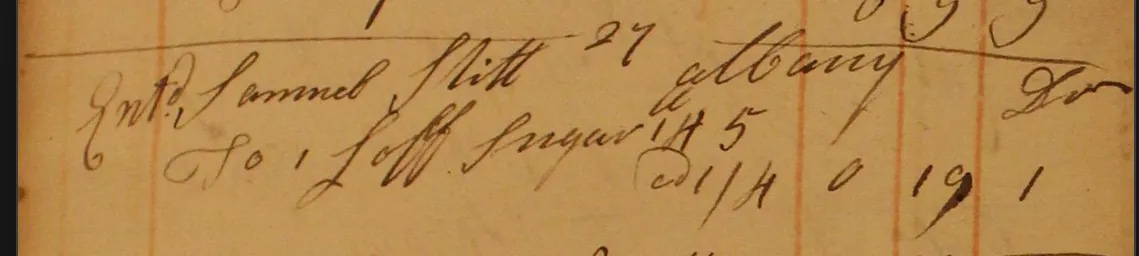 27
Entd. Samuel Stitt albany Dr
To 1 Loff Sugar 14 5
@ 1/4 0 19 1